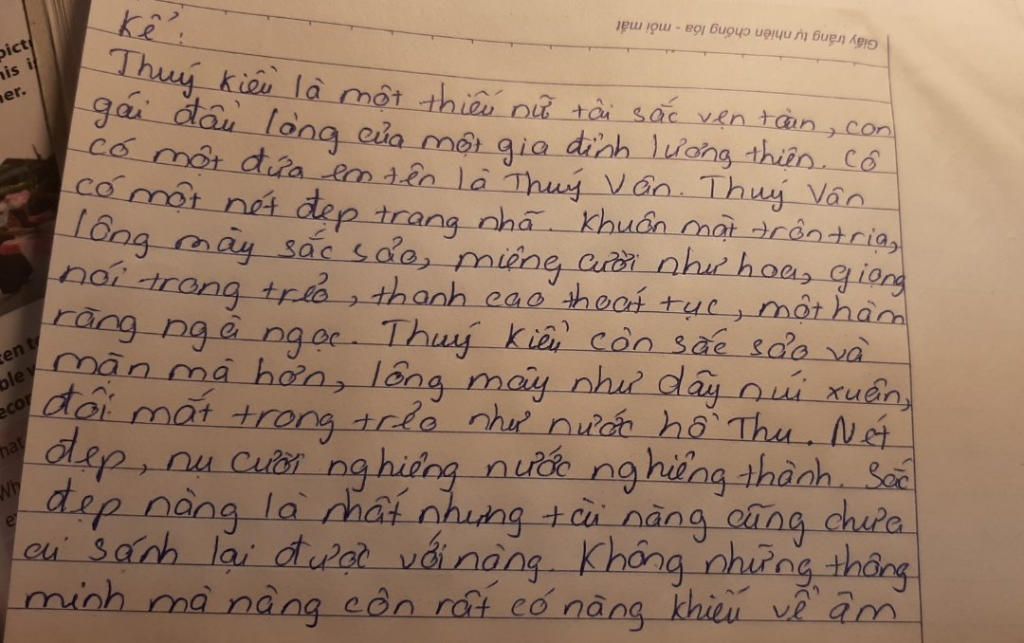 Giấy trắng tự nhiên chống lóa - mỏi mắt
Kể:
Thuý Kiều là một thiếu nữ tài sắc vẹn toàn, con
gái đầu lòng của một gia đình lương thiện. Cô
có một đứa em tên là Thuý Vân. Thuý Vân
có một nét đẹp trang nhã. Khuôn mặt tròn trịa,
lông mày sắc sảo, miệng cười như hoa, giọng
nói trong trẻo, thanh cao thoát tục, một hàm
răng ngà ngọc. Thuý Kiều còn sắc sảo và
mặn mà hơn, lông mày như dãy núi xuân,
đôi mắt trong trẻo như nước hồ Thu. Nét
đẹp, nụ cười nghiêng nước nghiêng thành. Sắc
đẹp nàng là nhất nhưng tài năng cũng chưa
ai sánh lại được với nàng. Không những thông
minh mà nàng còn rất có năng khiếu về âm
pict
his i
er.